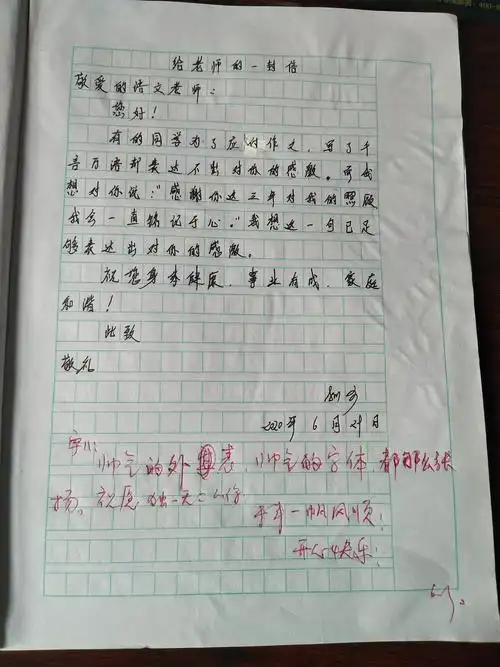 给老师的一封信
敬爱的语文老师:
您好!
有的同学为了应付作文,写了千
言万语却表达不出对你的感激。而我
想对你说:"感谢你这三年对我的照顾
我会一直铭记于心。"我想这一句已足
够表达出对你的感激。
祝您身体健康,事业有成,家庭
和谐!
此致
敬礼
2020年6月29日
帅气的外表,帅气的字体,都那么张
扬。祝愿
一帆风顺!
开心快乐!